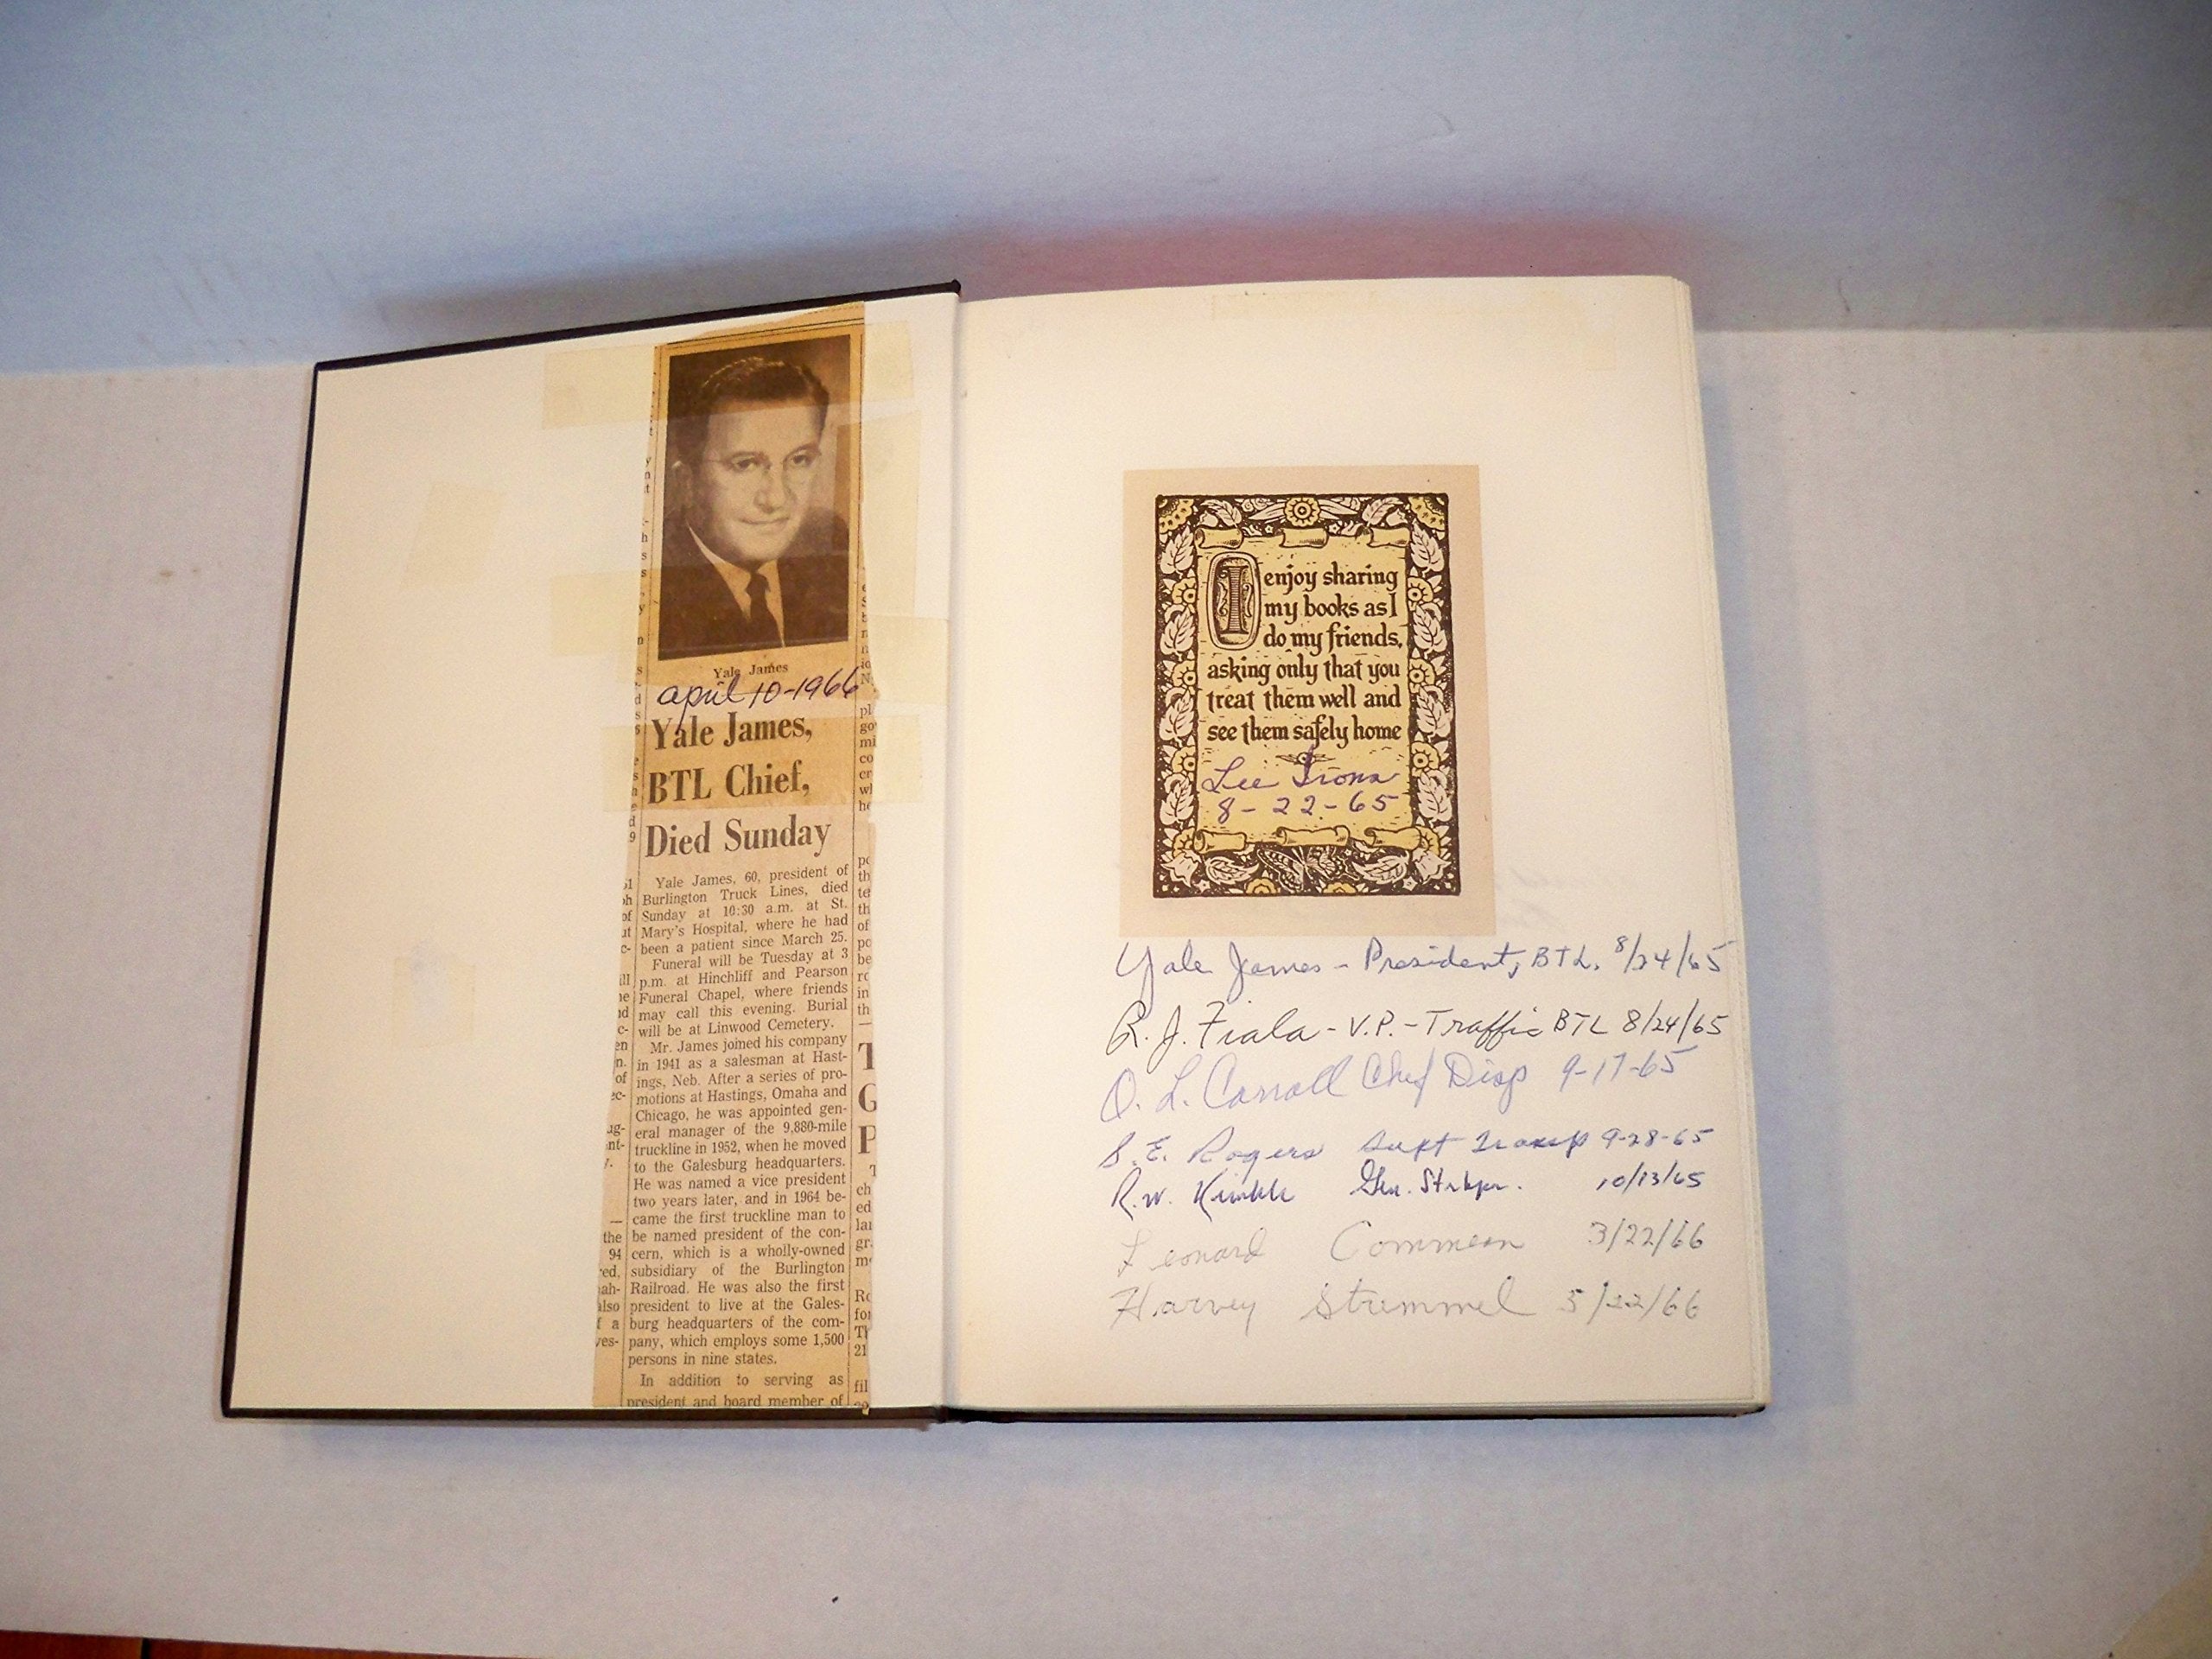 Yale James
april 10-1966
Yale James,
BTL Chief,
Died Sunday
Yale James, 60, president of
Burlington Truck Lines, died
Sunday at 10:30 a.m. at St.
Mary's Hospital, where he had
been a patient since March 25.
Funeral will be Tuesday at 3
p.m. at Hinchliff and Pearson
Funeral Chapel, where friends
may call this evening. Burial
will be at Linwood Cemetery.
Mr. James joined his company
in 1941 as a salesman at Hast-
ings, Neb. After a series of pro-
motions at Hastings, Omaha and
Chicago, he was appointed gen-
eral manager of the 9,880-mile
truckline in 1952, when he moved
to the Galesburg headquarters.
He was named a vice president
two years later, and in 1964 be-
came the first truckline man to
be named president of the con-
cern, which is a wholly-owned
subsidiary of the Burlington
Railroad. He was also the first
president to live at the Gales-
burg headquarters of the com-
pany, which employs some 1,500
persons in nine states.
In addition to serving as
president and board member of
I enjoy sharing
my books as I
do my friends,
asking only that you
treat them well and
see them safely home
Lee Irons
8-22-65
Yale James - President, BTL. 8/24/65
R. J. Fiala - V.P. - Traffic BTL 8/24/65
O. L. Carroll Chef Disp 9-17-65
S. E. Rogers Supt Transp 9-28-65
R. W. Kimble Gen. Strkpr. 10/13/65
Leonard Commean 3/22/66
Harvey Strummel 5/22/66